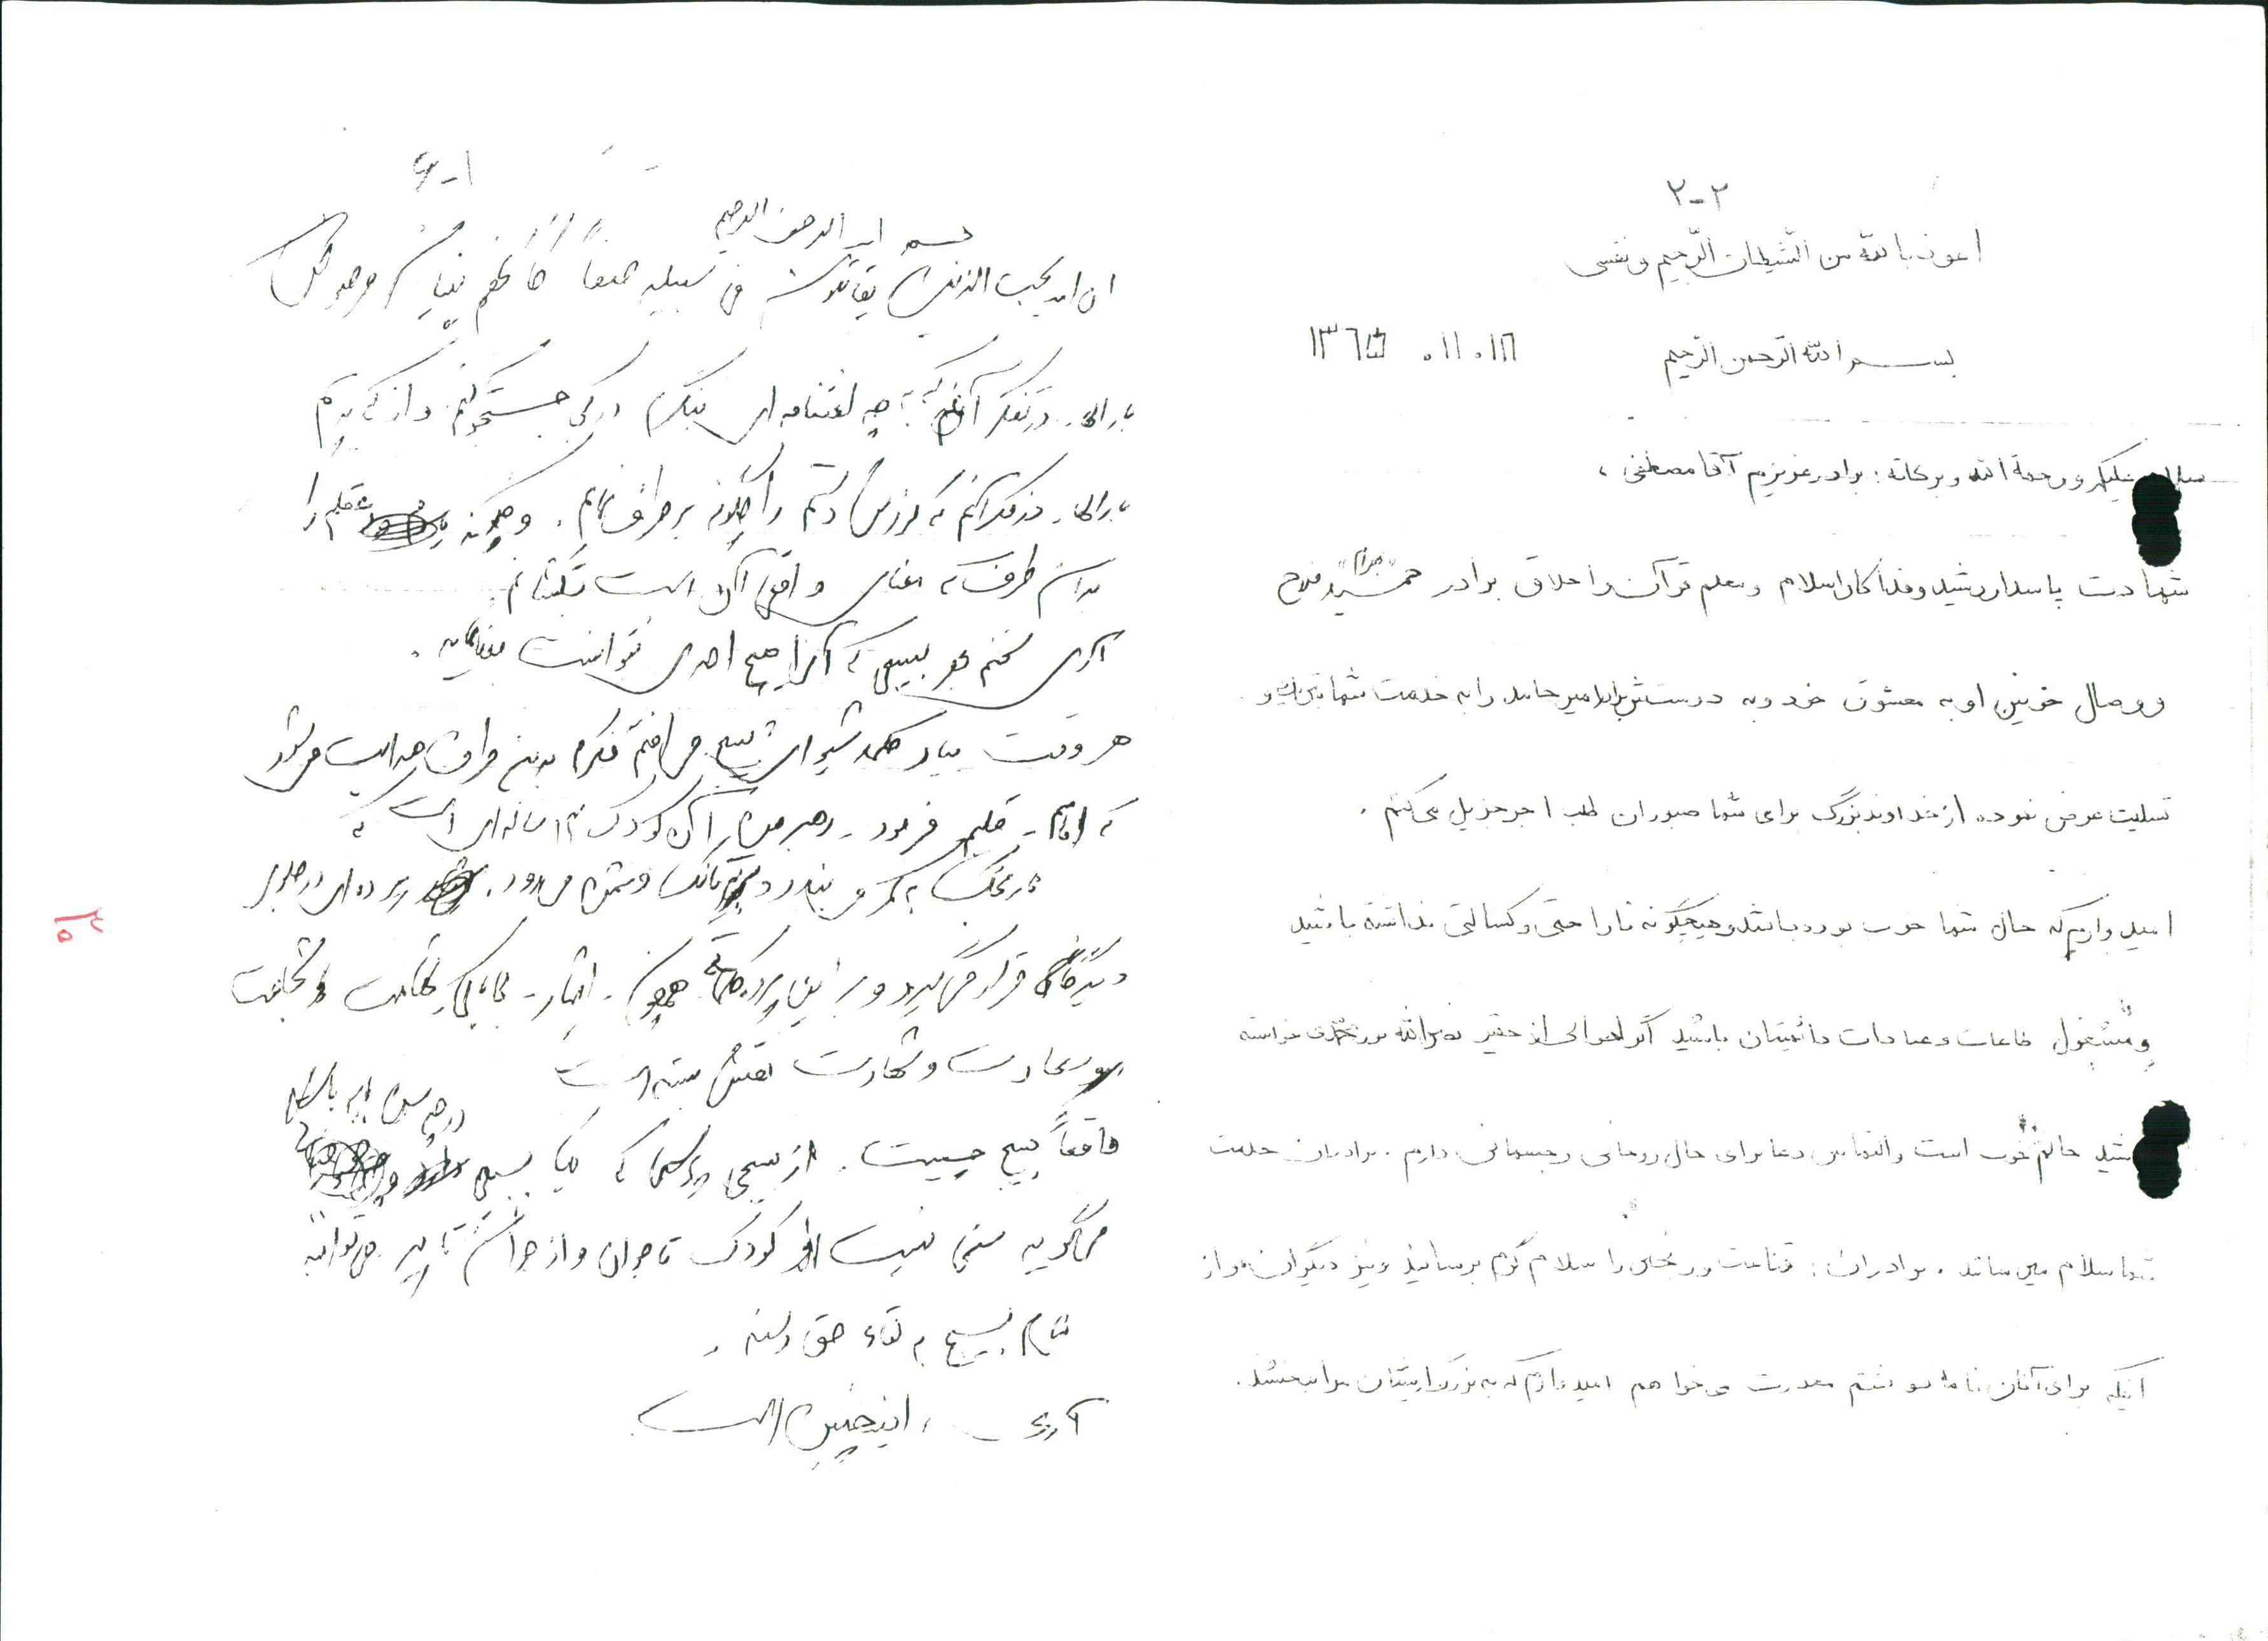 ۲-۲
اعوذ بالله من الشیطان الرجیم و نفسی
بسم الله الرحمن الرحیم ۱۳۶۵ .۱۱.۱۸
سلام علیکم و رحمة الله و برکاته: برادر عزیزم آقا مصطفی،
شهادت پاسدار رشید و فداکار اسلام و معلم قرآن و اخلاق برادر حمید فلاح
و وصال خونین او به معشوق خود و به درستش برادر امیر حامد را به خدمت شما تبریک و
تسلیت عرض نموده از خداوند بزرگ برای شما صبوران طلب اجر جزیل می کنم.
امیدوارم که حال شما خوب بوده باشد و هیچگونه ناراحتی و کسالتی نداشته باشید
و مشغول طاعات و عبادات دائمیتان باشید اگر احوالی از حقیر خواسته
باشید حالم خوب است و التماس دعا برای حال روحانی و جسمانی دارم. برادران خدمت
شما سلام میرسانند. برادران: قناعت و را سلام گرم برسانید و نیز دیگران و از
اینکه برای آنان نامه ننوشتم معذرت می خواهم امیدوارم که به بزرگواریشان مرا ببخشند.
۱-۶
بسم الله الرحمن الرحیم
ان الله یحب الذین یقاتلون فی سبیله صفا کانهم بنیان مرصوص
بارالها. در تفکر آنم که به چه لغتنامه ای بنگرم در کی جستجو کنم و از که بپرسم
بارالها. در فکر آنم که لرزش دستم را چگونه برطرف نمایم. و چگونه عقلم را
بدان طرف که معنای واقعی آن است بکشانم.
آری سخنم بر بسیجی که آنرا هیچ احدی نتوانست معنا نماید.
هر وقت بیاد کلمه شیوای بسیج می افتم فکرم بدین طرف هدایت می شود
که امام عظیم فرمود. رهبر من آن کودک ۱۳ ساله ای است که
نارنجک به کمر می بندد و زیر تانک دشمن می رود. پرده ای در جلوی
دیدگانم قرار می گیرد و بر این پرده کلماتی همچون. ایثار. شهامت و شجاعت
و سعادت و شهادت نقش بسته است
واقعاً بسیج چیست. از بسیجی پرسش که بیا بسیجی در چه سن باید باشد
می گوید سنی نیست از کودک تا جوان و از جوان تا پیر می توانند
نام بسیج به لقاء حق رسند.
آری، اینچنین است
۲۵